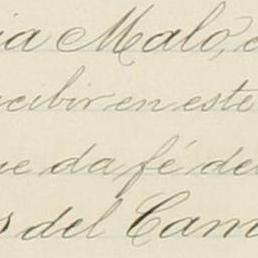 ia Malo, c
ecibir en este
ue da fé de
s del Cam